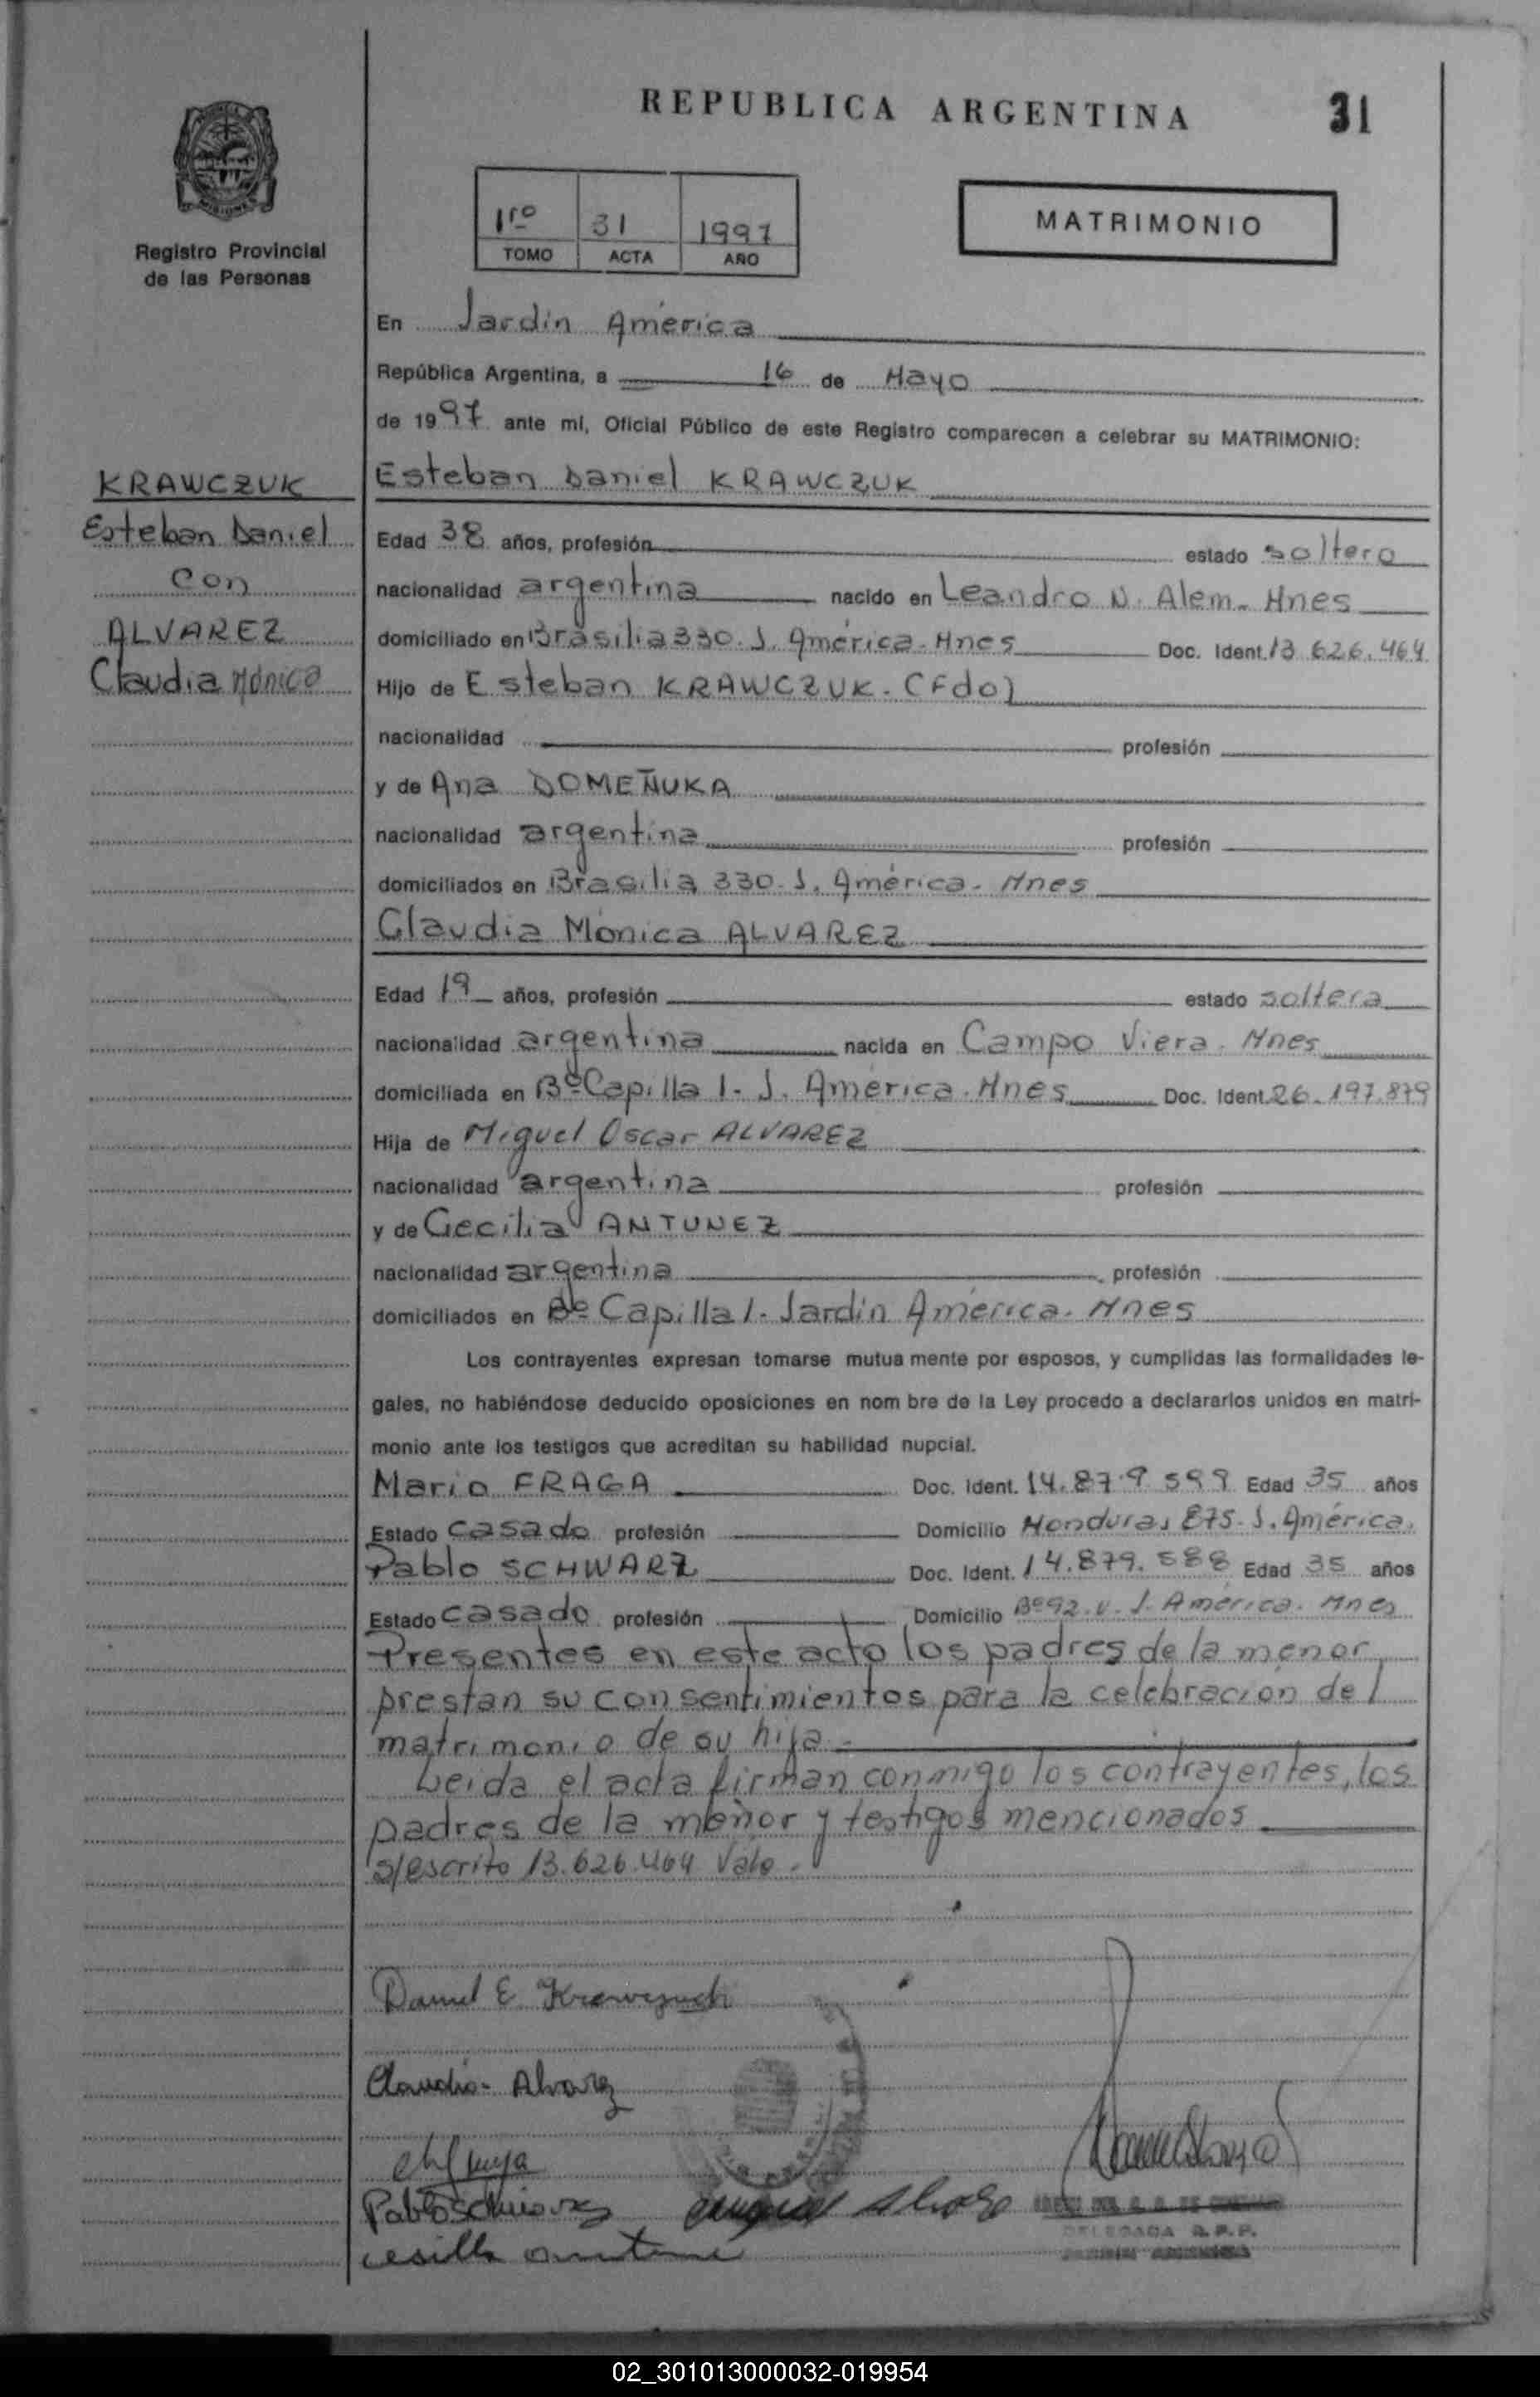 REPUBLICA ARGENTINA
31
MISIONES
Registro Provincial
de las Personas
1ro 31 1997
TOMO ACTA AÑO
MATRIMONIO
En Jardín América
República Argentina, a 16 de Mayo
de 1997 ante mí, Oficial Público de este Registro comparecen a celebrar su MATRIMONIO:
KRAWCZUK
Esteban Daniel
con
ALVAREZ
Claudia Mónica
Esteban Daniel KRAWCZUK
Edad 38 años, profesión estado soltero
nacionalidad argentina nacido en Leandro N. Alem. Mnes
domiciliado en Brasilia 330. J. América. Mnes Doc. Ident. 13.626.464
Hijo de Esteban KRAWCZUK. (Fdo)
nacionalidad profesión
y de Ana DOMEÑUKA
nacionalidad argentina profesión
domiciliados en Brasilia 330. J. América. Mnes
Claudia Mónica ALVAREZ
Edad 19 años, profesión estado soltera
nacionalidad argentina nacida en Campo Viera. Mnes
domiciliada en Bº Capilla 1. J. América. Mnes Doc. Ident. 26.197.879
Hija de Miguel Oscar ALVAREZ
nacionalidad argentina profesión
y de Cecilia ANTUNEZ
nacionalidad argentina profesión
domiciliados en Bº Capilla 1. Jardín América. Mnes
Los contrayentes expresan tomarse mutua mente por esposos, y cumplidas las formalidades le-
gales, no habiéndose deducido oposiciones en nom bre de la Ley procedo a declararlos unidos en matri-
monio ante los testigos que acreditan su habilidad nupcial.
Mario FRAGA Doc. Ident. 14.879.599 Edad 35 años
Estado casado profesión Domicilio Honduras 875. J. América.
Pablo SCHWARZ Doc. Ident. 14.879.588 Edad 35 años
Estado casado profesión Domicilio Bº 92.v. J. América. Mnes
Presentes en este acto los padres de la menor
prestan su consentimientos para la celebración del
matrimonio de su hija.
Leida el acta firman conmigo los contrayentes, los
padres de la menor y testigos mencionados
s/escrito 13.626.464 Vale.
Daniel E Krawczuk
Claudia Alvarez
Pablo Schwarz
Alvarez
DELEGADA R.P.P.
JARDIN AMERICA
02_301013000032-019954